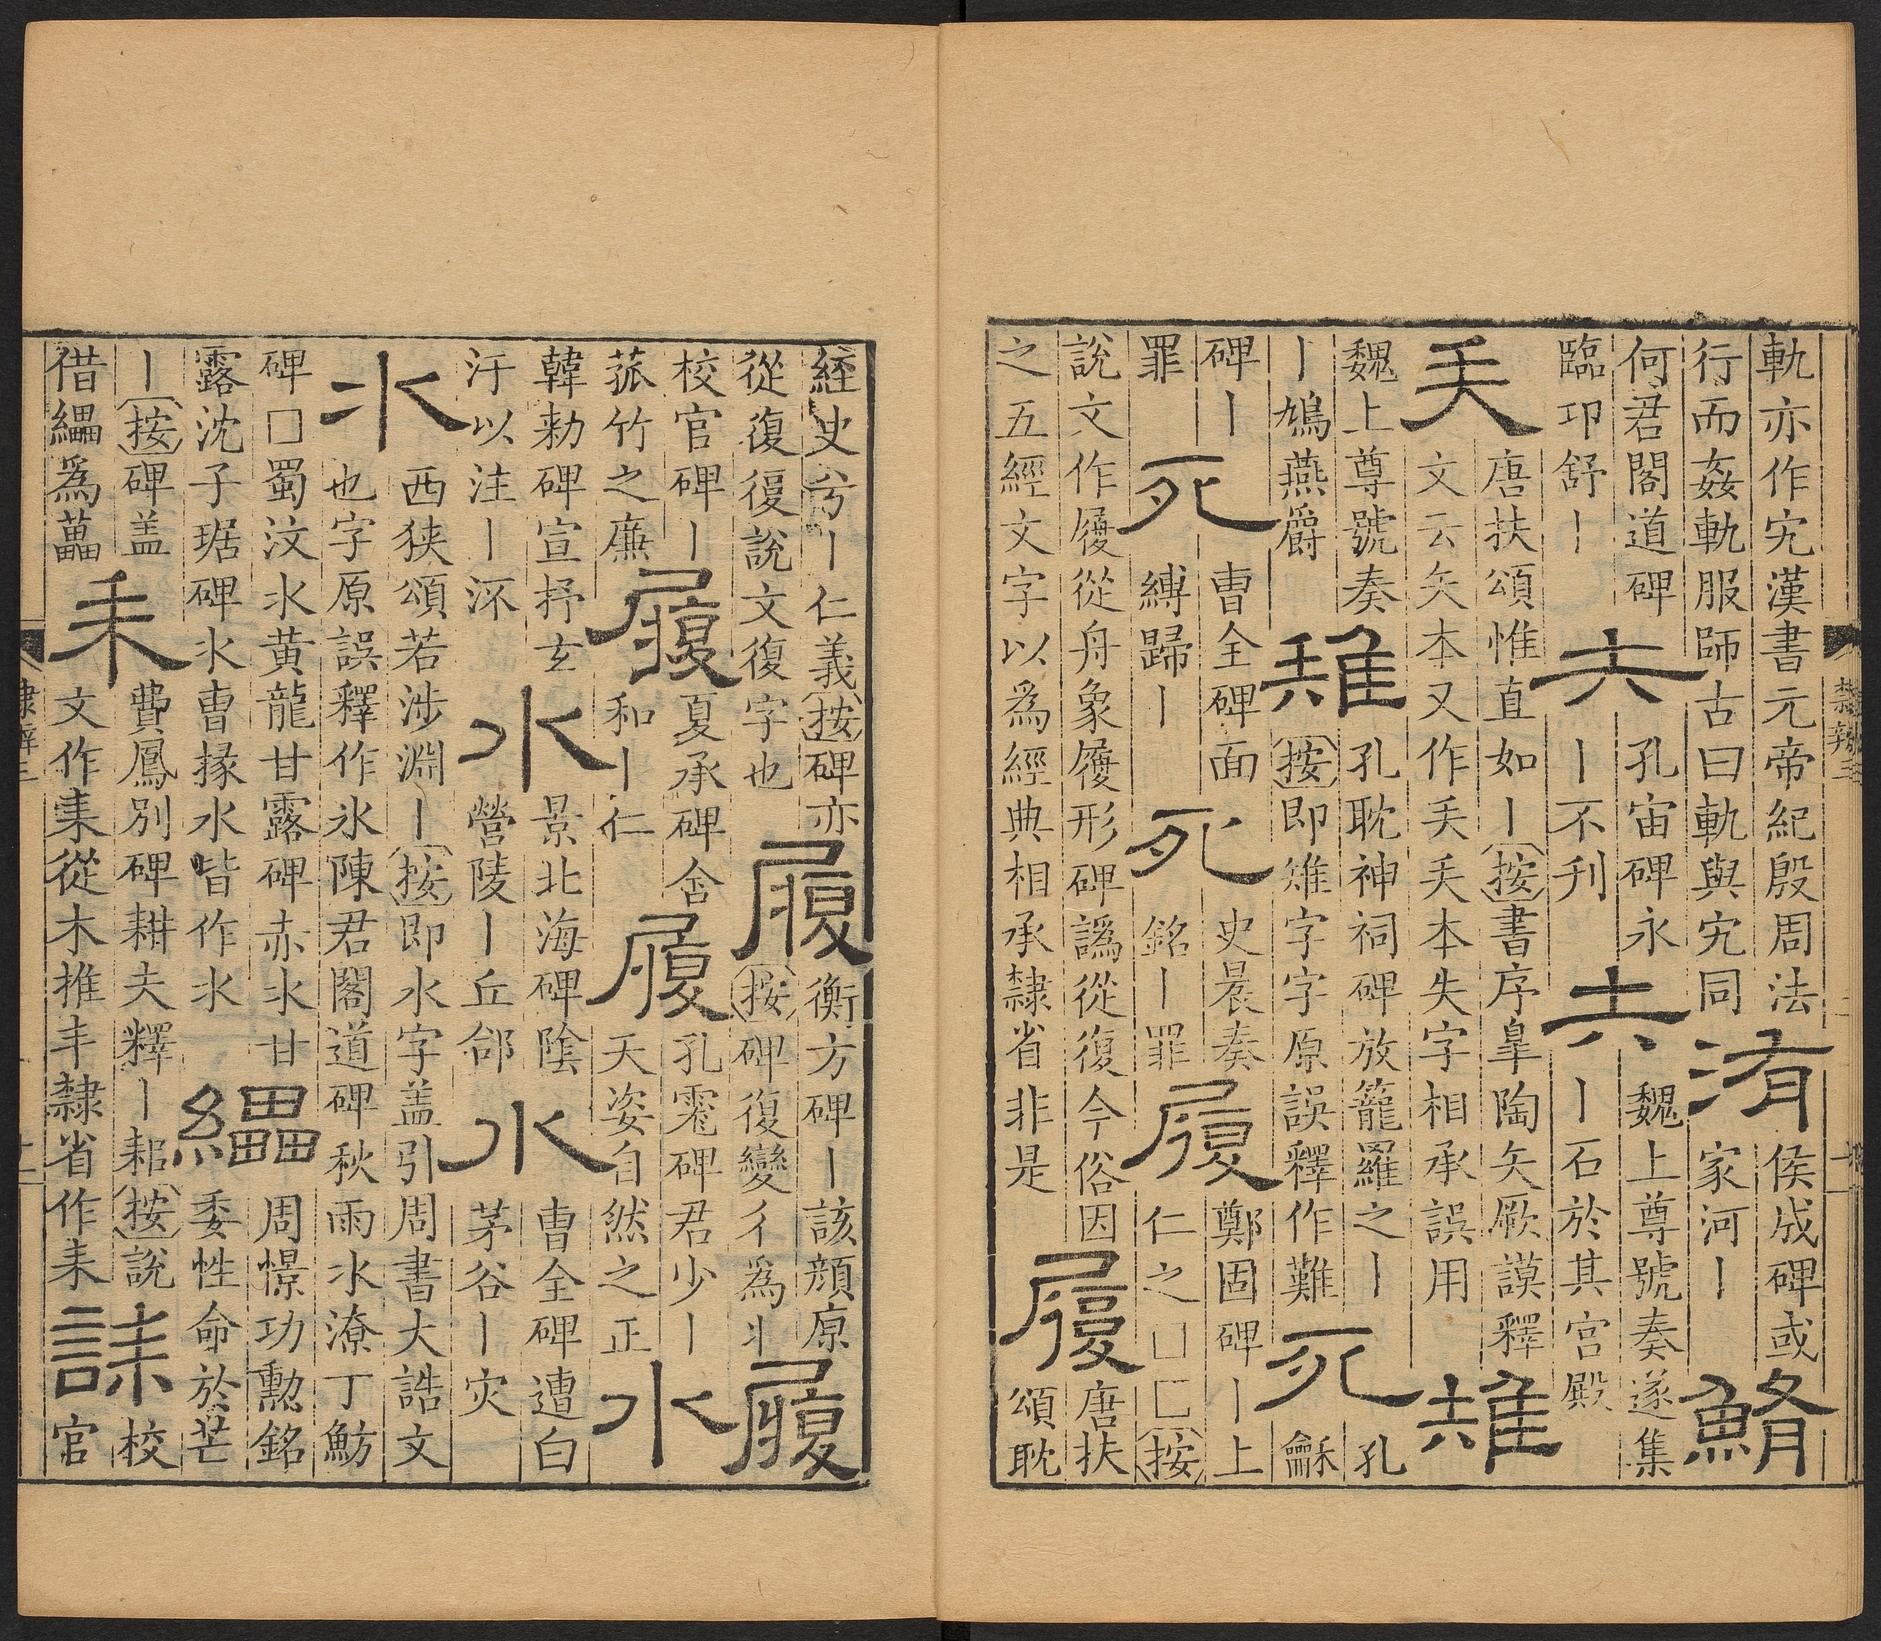 軌亦作宄漢書元帝紀殷周法
行而姦軌服師古曰軌與宄同
洧
侯成碑或
家河丨
鮪
何君閣道碑
臨邛舒丨
矢
孔宙碑永
丨不刊
矢
魏上尊號奏遂集
丨石於其宮殿
矢
唐扶頌惟直如丨按書序皋陶矢厥謨釋
文云矢本又作𠂕𠂕本失字相承誤用
雉
魏上尊號奏
丨鳩燕爵
雉
孔耽神祠碑放籠羅之丨
按即雉字字原誤釋作難
死
孔
龢
碑丨
罪
死
曹全碑面
縛歸丨
死
史晨奏
銘丨罪
履
鄭固碑丨上
仁之凵匚按
説文作履從舟象履形碑譌從復今俗因
之五經文字以爲經典相承隸省非是
履
唐扶
頌耽
經史兮丨仁義按碑亦
從復復説文復字也
履
衡方碑丨該顔原
按碑復變彳爲丬
履
校官碑丨
菰竹之廉
履
夏承碑含
和丨仁
履
孔宙碑君少丨
天姿自然之正
水
韓勑碑宣抒玄
汙以注丨沶
水
景北海碑陰
營陵丨丘郃
水
曹全碑遭白
茅谷丨灾
水
西狹頌若涉淵丨按即水字盖引周書大誥文
也字原誤釋作氷陳君閣道碑秋雨水潦丁魴
碑囗蜀汶水黄龍甘露碑赤水甘
露沈子琚碑水曹掾水皆作水
纝
周憬功勳銘
委性命於芒
丨按碑盖
借纝爲藟
耒
費鳳別碑耕夫釋丨耜按説
文作耒從木推丰隸省作耒
誄
校
官